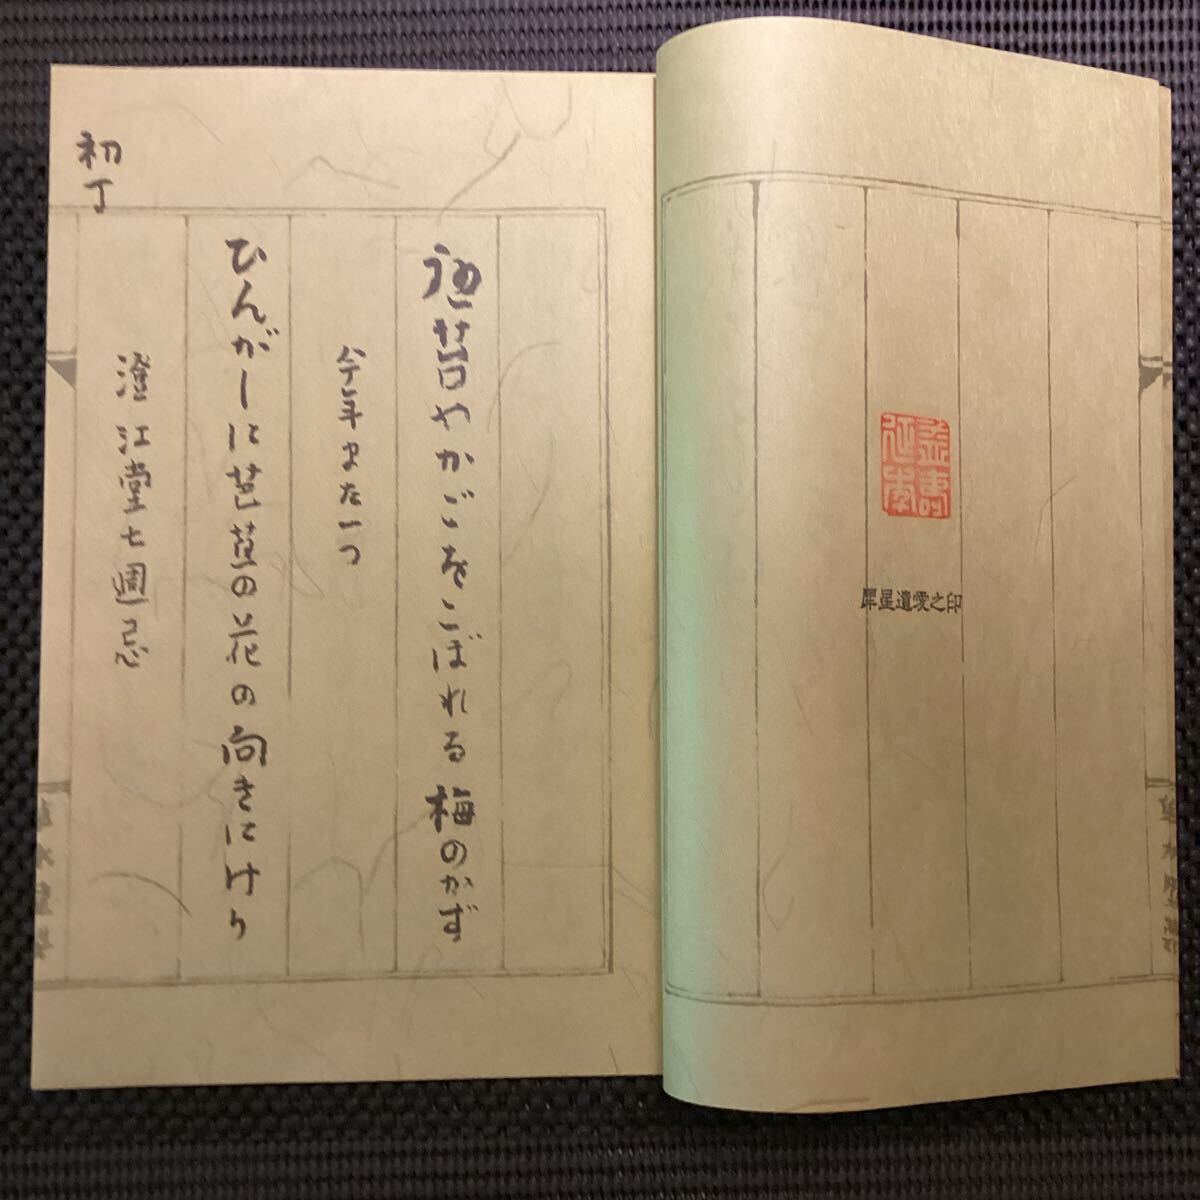 益壽延年
犀星遺愛之印
苔やかごをこぼれる梅のかず
今年また一つ
ひんがしに芭蕉の花の向きにけり
澄江堂七週忌
初丁